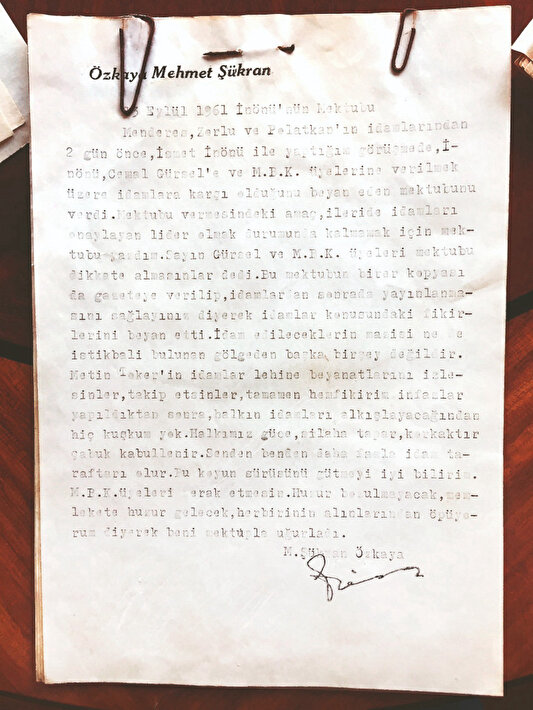 Özkaya Mehmet Şükran
Eylül 1961 İnönü'nün Mektubu
Menderes,Zorlu ve Polatkan'ın idamlarından
2 gün önce,İsmet İnönü ile yaptığım görüşmede,İ-
nönü,Cemal Gürsel'e ve M.B.K. üyelerine verilmek
üzere idamlara karşı olduğunu beyan eden mektubunu
verdi.Mektubu vermesindeki amaç,ileride idamları
onaylayan lider olmak durumunda kalmamak için mek-
tubu yazdım.Sayın Gürsel ve M.B.K. üyeleri mektubu
dikkate almasınlar dedi.Bu mektubun birer kopyası
da gazeteye verilip,idamlardan sonrada yayınlanma-
sını sağlayınız diyerek idamlar konusundaki fikir-
lerini beyan etti.İdam edileceklerin mazisi ne de
istikbali bulunan gölgeden başka birşey değildir.
Metin Toker'in idamlar lehine beyanatlarını izle-
sinler,takip etsinler,tamamen hemfikirim infazlar
yapıldıktan sonra,halkın idamları alkışlayacağından
hiç kuşkum yok.Halkımız güce,silaha tapar,korkaktır
çabuk kabullenir.Senden benden daha fazla idam ta-
raftarı olur.Bu koyun sürüsünü gütmeyi iyi bilirim.
M.B.K.üyeleri merak etmesin.Huzur bozulmayacak,mem-
lekete huzur gelecek,herbirinin alınlarından öpüyo-
rum diyerek beni mektupla uğurladı.
M.Şükran Özkaya